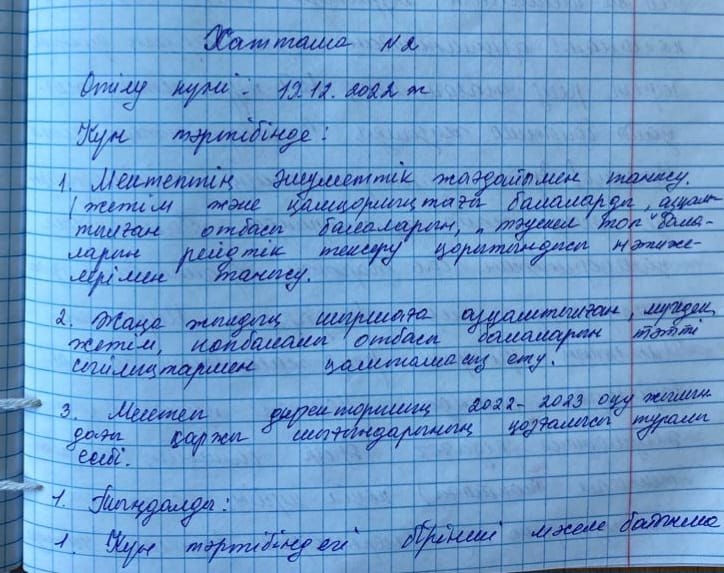 Хаттама №2
Өтілу күні: 19.12.2022 ж
Күн тәртібінде:
1. Мектептің әлеуметтік жағдайымен танысу.
(жетім және қамқорлықтағы балаларды, ажырас-
тылған отбасы балаларын, "тәуекел топ" бала-
ларын рейдтік тексеру қорытындысы нәтиже-
лерімен танысу.
2. Жаңа жылдық шыршаға мүгедек,
жетім, көпбалалы отбасы балаларын тәтті
сыйлықтармен қамтамасыз ету.
3. Мектеп директорының 2022-2023 оқу жылын
дағы қаржы шығындарының қозғалысы туралы
есебі.
1. Тыңдалды:
1. Күн тәртібіндегі бірінші мәселе бойынша